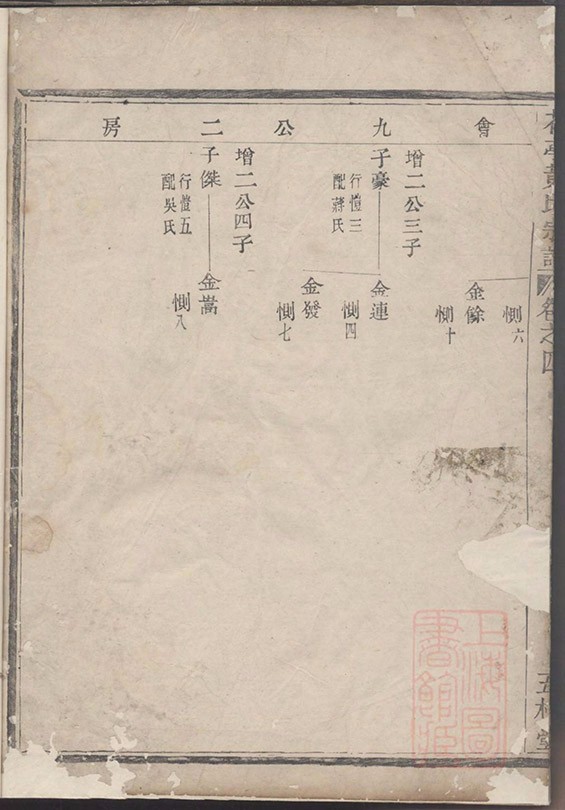 黃氏宗譜
卷之四
會九公二房
惻六
金餘
惻十
增二公三子
子豪
金連
行愷三
配蔣氏
惻四
金發
惻七
增二公四子
子傑
金嵩
行愷五
配吳氏
惻八
上海圖
書館藏